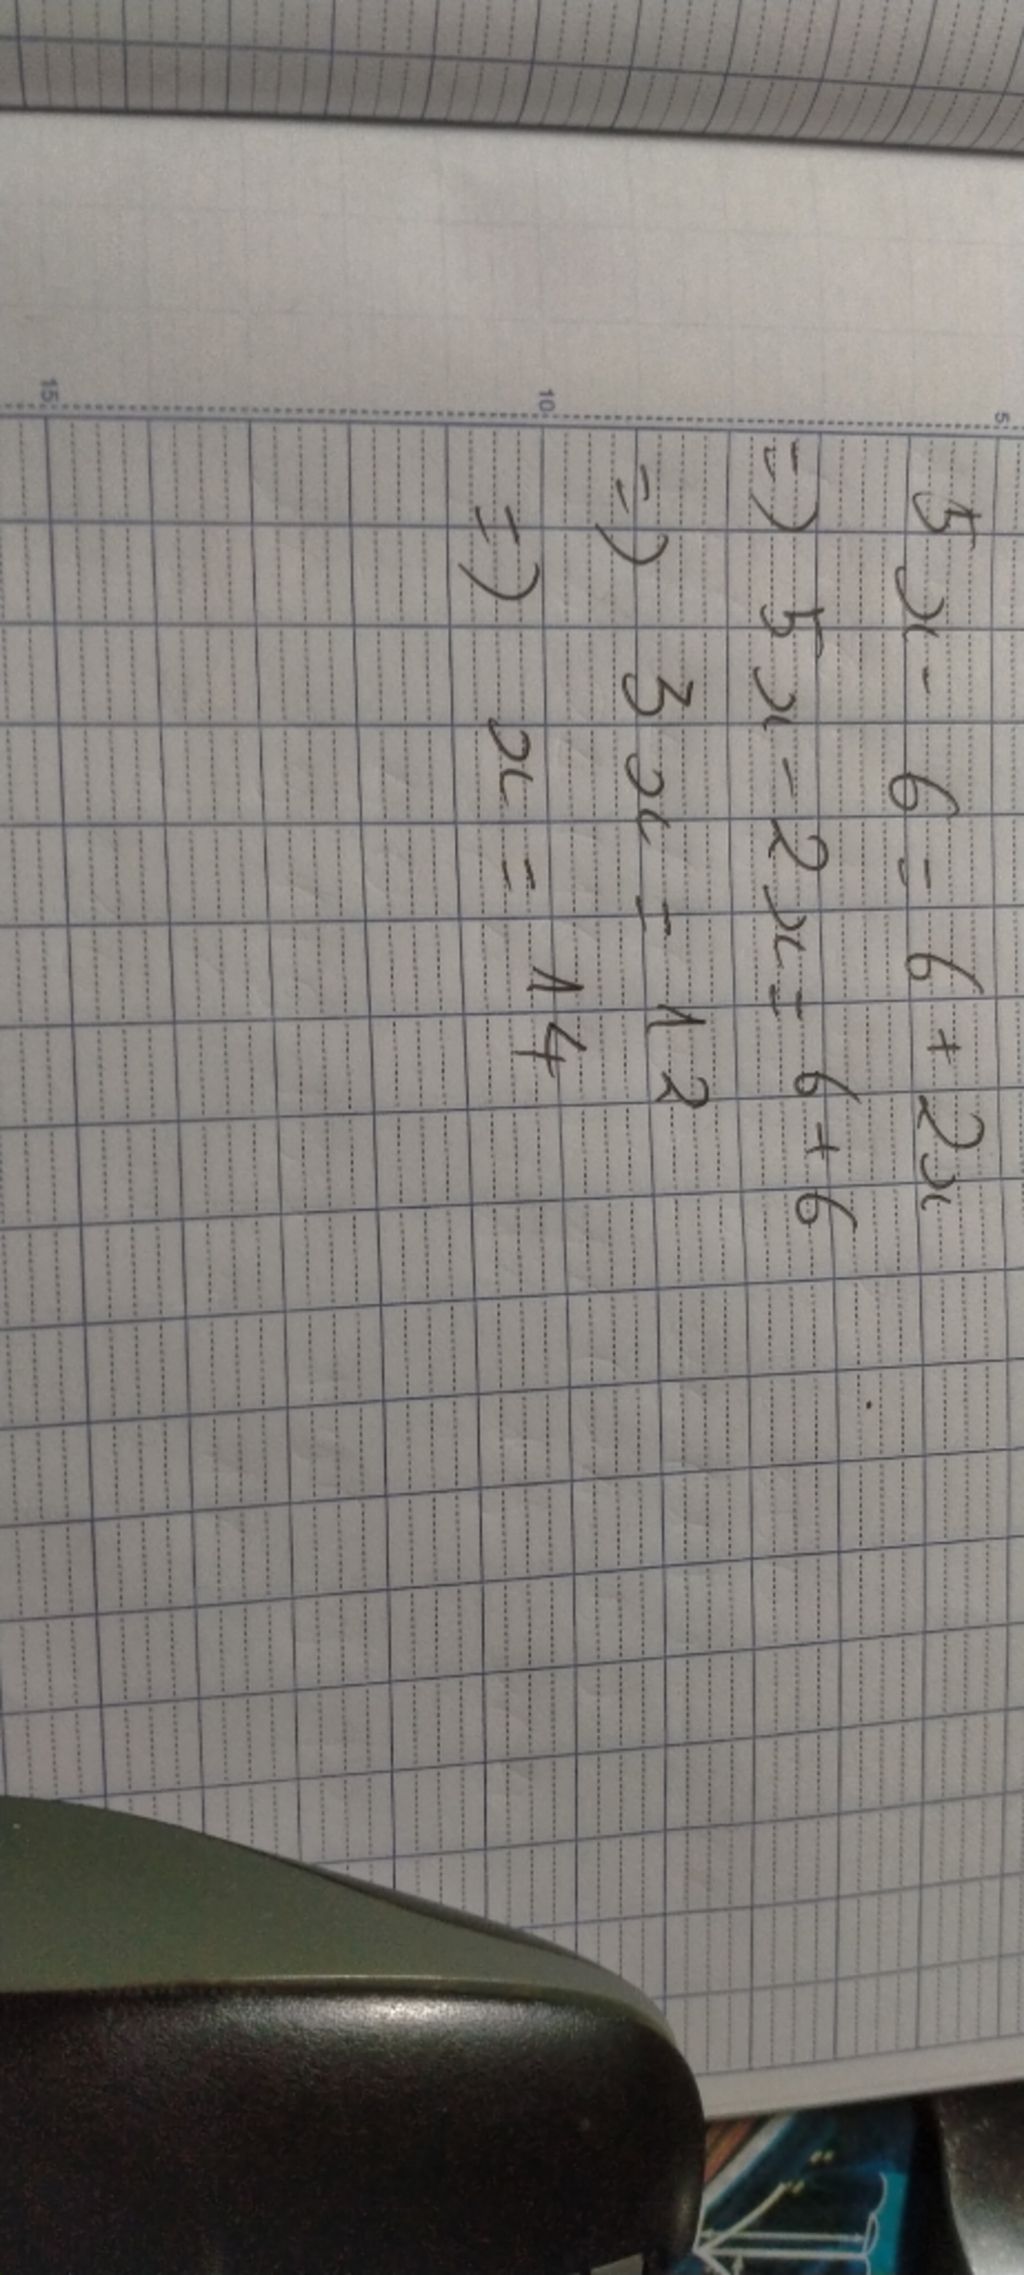 5x - 6 = 6 + 2x
=) 5x - 2x = 6 + 6
=) 3x = 12
=) x = 14
5
10
15